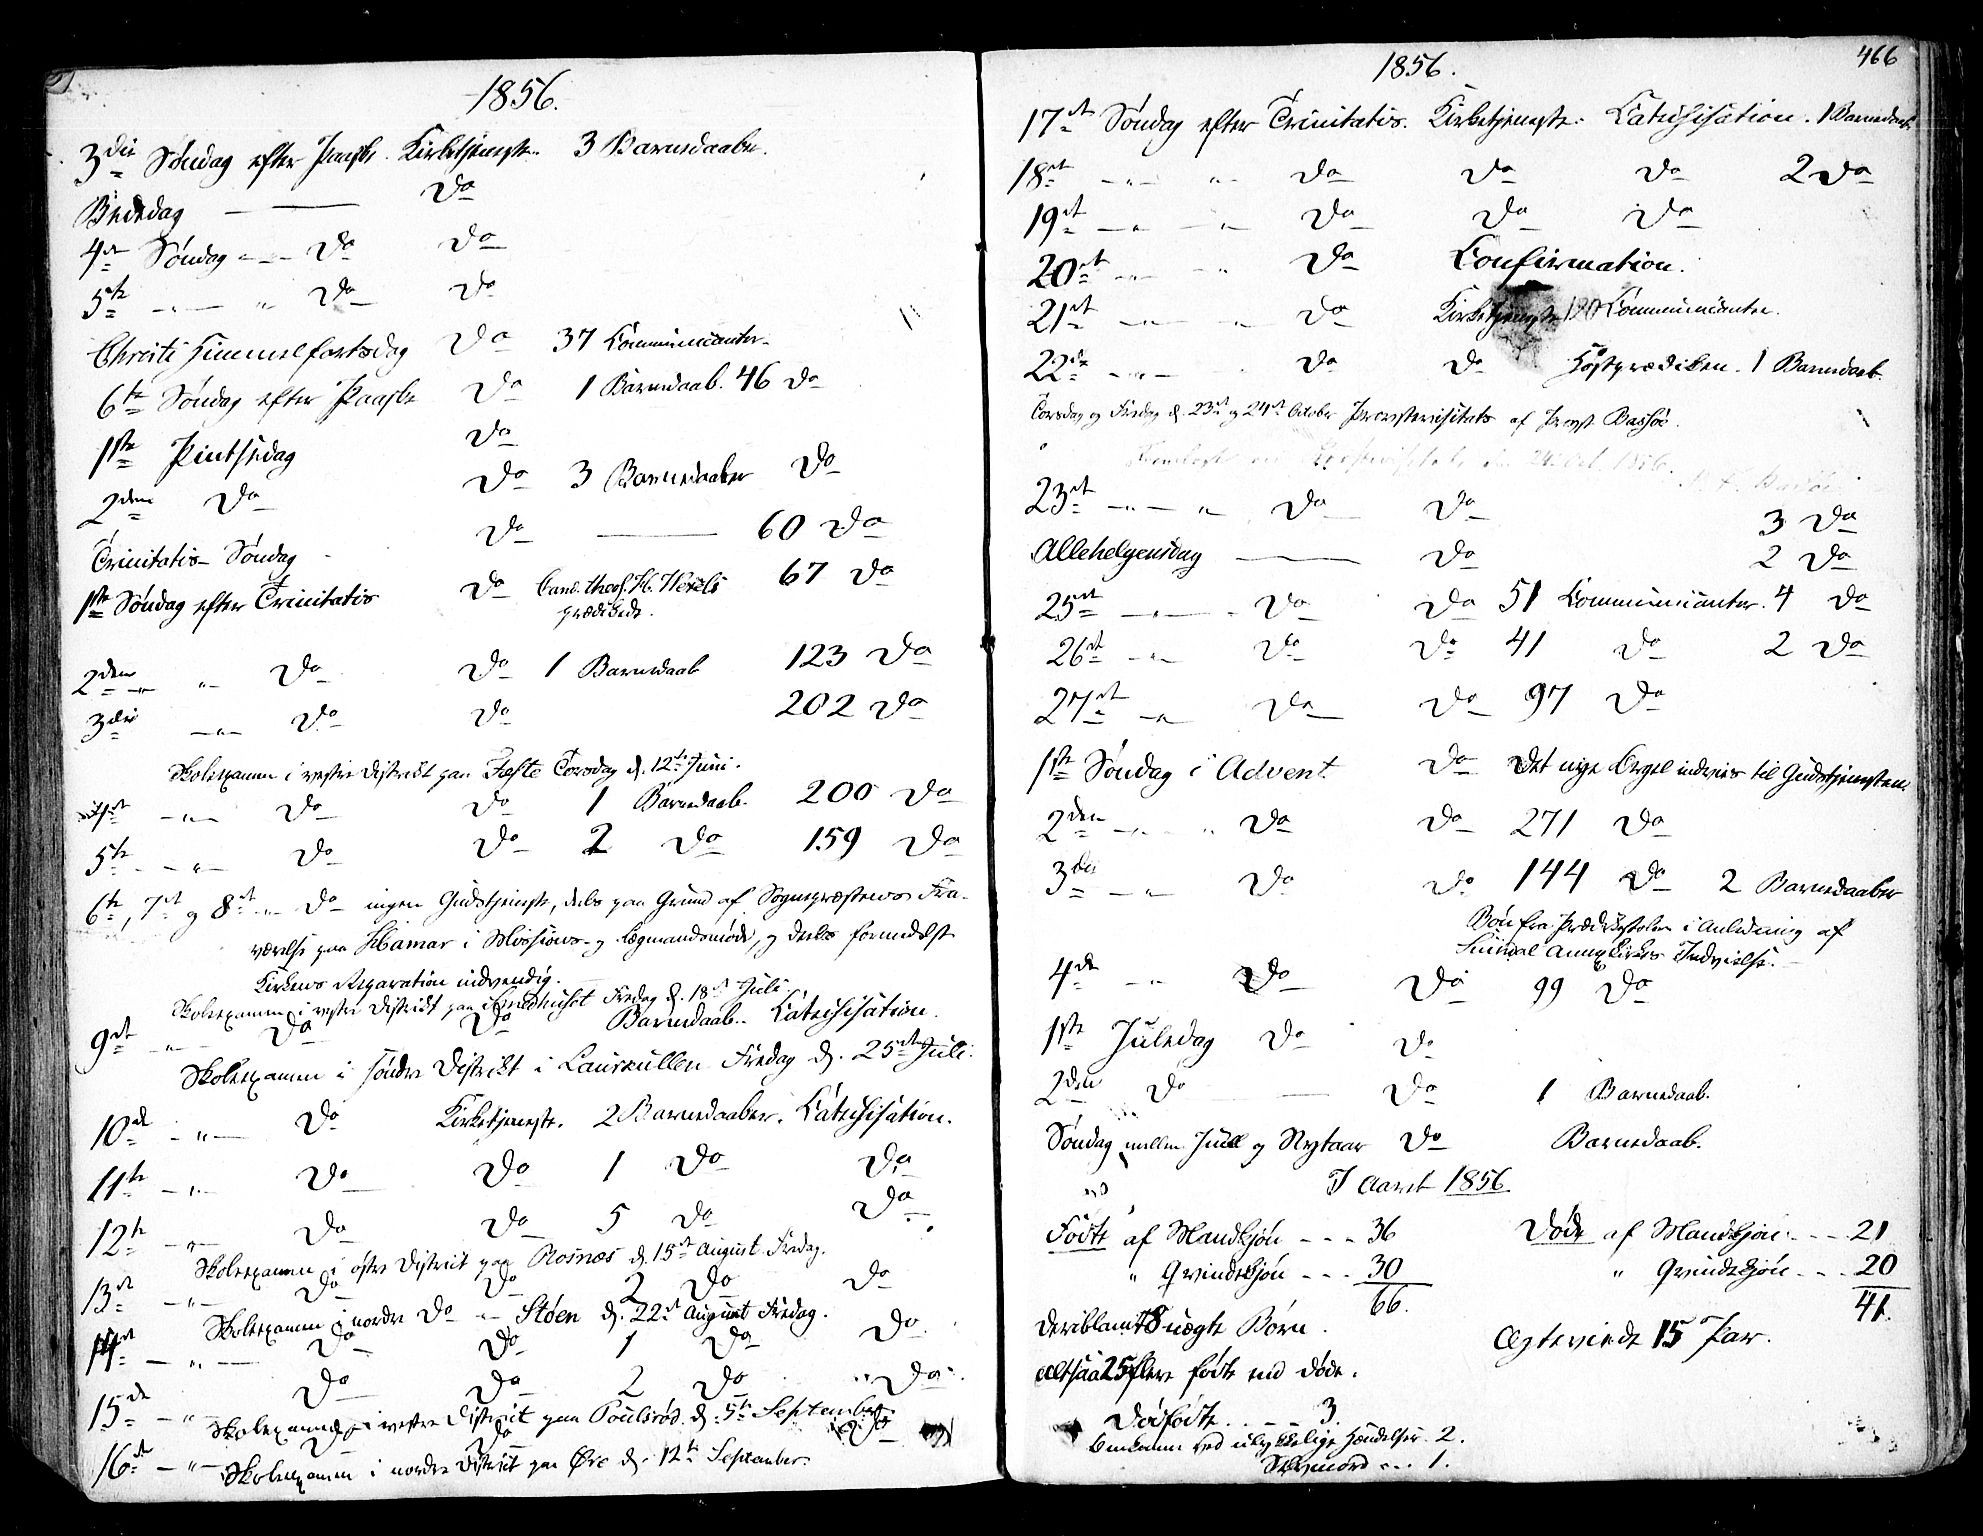 1856.
3die Søndag efter Paaske. Kirketjeneste. 3 Barnedaaber.
Bededag — Do
4de Søndag - " - Do Do
5te - " - " Do Do
Christi Himmelfartsdag Do 37 Communicanter.
6te Søndag efter Paaske Do 1 Barnedaab. 46 Do
1ste Pintsedag Do
2den Do Do 3 Barnedaaber Do
Trinitatis Søndag Do — 60 Do
1ste Søndag efter Trinitatis Do Cand. theol. H. Wexels 67 Do
prædikede.
2den - " - " - Do Do 1 Barnedaab 123 Do
3die - " - Do Do 202 Do
Skoleexamen i vestre District paa Tæste Torsdag d. 12te Juni.
4de - " - Do Do 1 Barnedaab. 200 Do
5te - " - Do Do 2 Do 159 Do
6te, 7de og 8de - " - Do ingen Gudstjeneste, dels paa Grund af Sognepræstens Fra-
værelse paa Hamar i Missions- og Lægmandsmøde, og dels formedelst
Kirkens Reparation indvendig.
Skoleexamen i vestre District paa Fredag d. 18de Juli
9de - " - Do Do Barnedaab. Catechisation.
Skoleexamen i søndre District i Laurkullen Fredag d. 25de Juli.
10de - " - Do Kirketjeneste. 2 Barnedaaber. Catechisation.
11te - " - Do Do 1 Do Do
12te - " - Do Do 5 Do Do
Skoleexamen i østre District paa Rosnæs d. 15de August Fredag.
13de - " - Do Do 2 Do Do
Skoleexamen i nordre Do - " - Støen d. 22de August Fredag.
14de - " - Do Do 1 Do Do
15de - " - Do Do 2 Do Do
Skoleexamen i vestre District paa Poulsrød d. 5te September.
16de - " - Do Do 2 Do
Skoleexamen i nordre District paa Øre d. 12te September.
466
1856.
17de Søndag efter Trinitatis. Kirketjeneste. Catechisation. 1 Barnedaab.
18de - " - " Do Do Do 2 Do
19de - " - " Do Do Do
20de - " - " Do Confirmation.
21de - " - " Do Kirketjeneste 120 Communicanter.
22de - " - Do Do Høstprædiken. 1 Barnedaab.
Torsdag og Fredag d. 23de og 24de October Provstevisitats af Provst Bassøe.
Fremlagt ved Provstevisitats den 24 Oct. 1856.
23de - " - " Do Do 3 Do
Allehelgensdag — Do 2 Do
25de - " - Do Do 51 Communicanter. 4 Do
26de - " - Do Do 41 Do 2 Do
27de - " - Do Do 97 Do
1ste Søndag i Advent Do Det nye Orgel indvies til Gudstjenesten.
2den - " - " Do Do 271 Do
3die - " - Do Do 144 Do 2 Barnedaaber
Bøn fra Prædikestolen i Anledning af
Annexkirkes Indvielse.
4de - " - Do Do 99 Do
1ste Juledag Do Do
2den Do — Do 1 Barnedaab.
Søndag mellem Juul og Nytaar Do Barnedaab.
I Aaret 1856
Fødte af Mandkjøn - - - 36 Døde af Mandkjøn - - - 21
" Qvindekjøn - - - 30 " Qvindekjøn - - - 20
66. 41.
Deriblandt 8 uægte Børn. Ægteviede 15 Par.
Altsaa 25 flere fødte end døde.
Dødfødte - - - 3.
Omkomne ved ulykkelige Hændelser. 2.
Selvmord - - - 1.